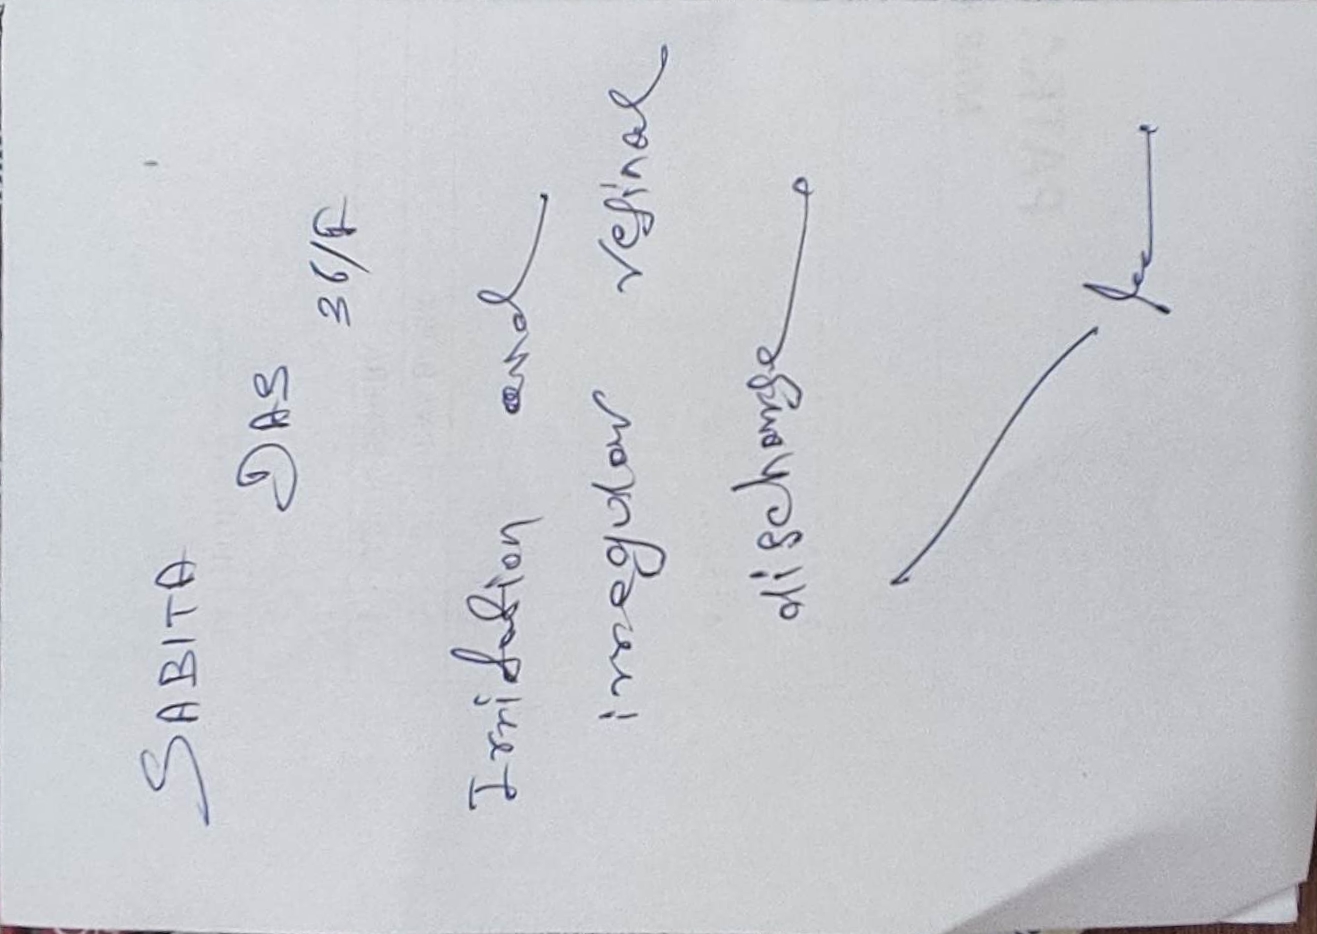 SABITA
DAS
36/F
Irritation and
irregular veginal
discharge